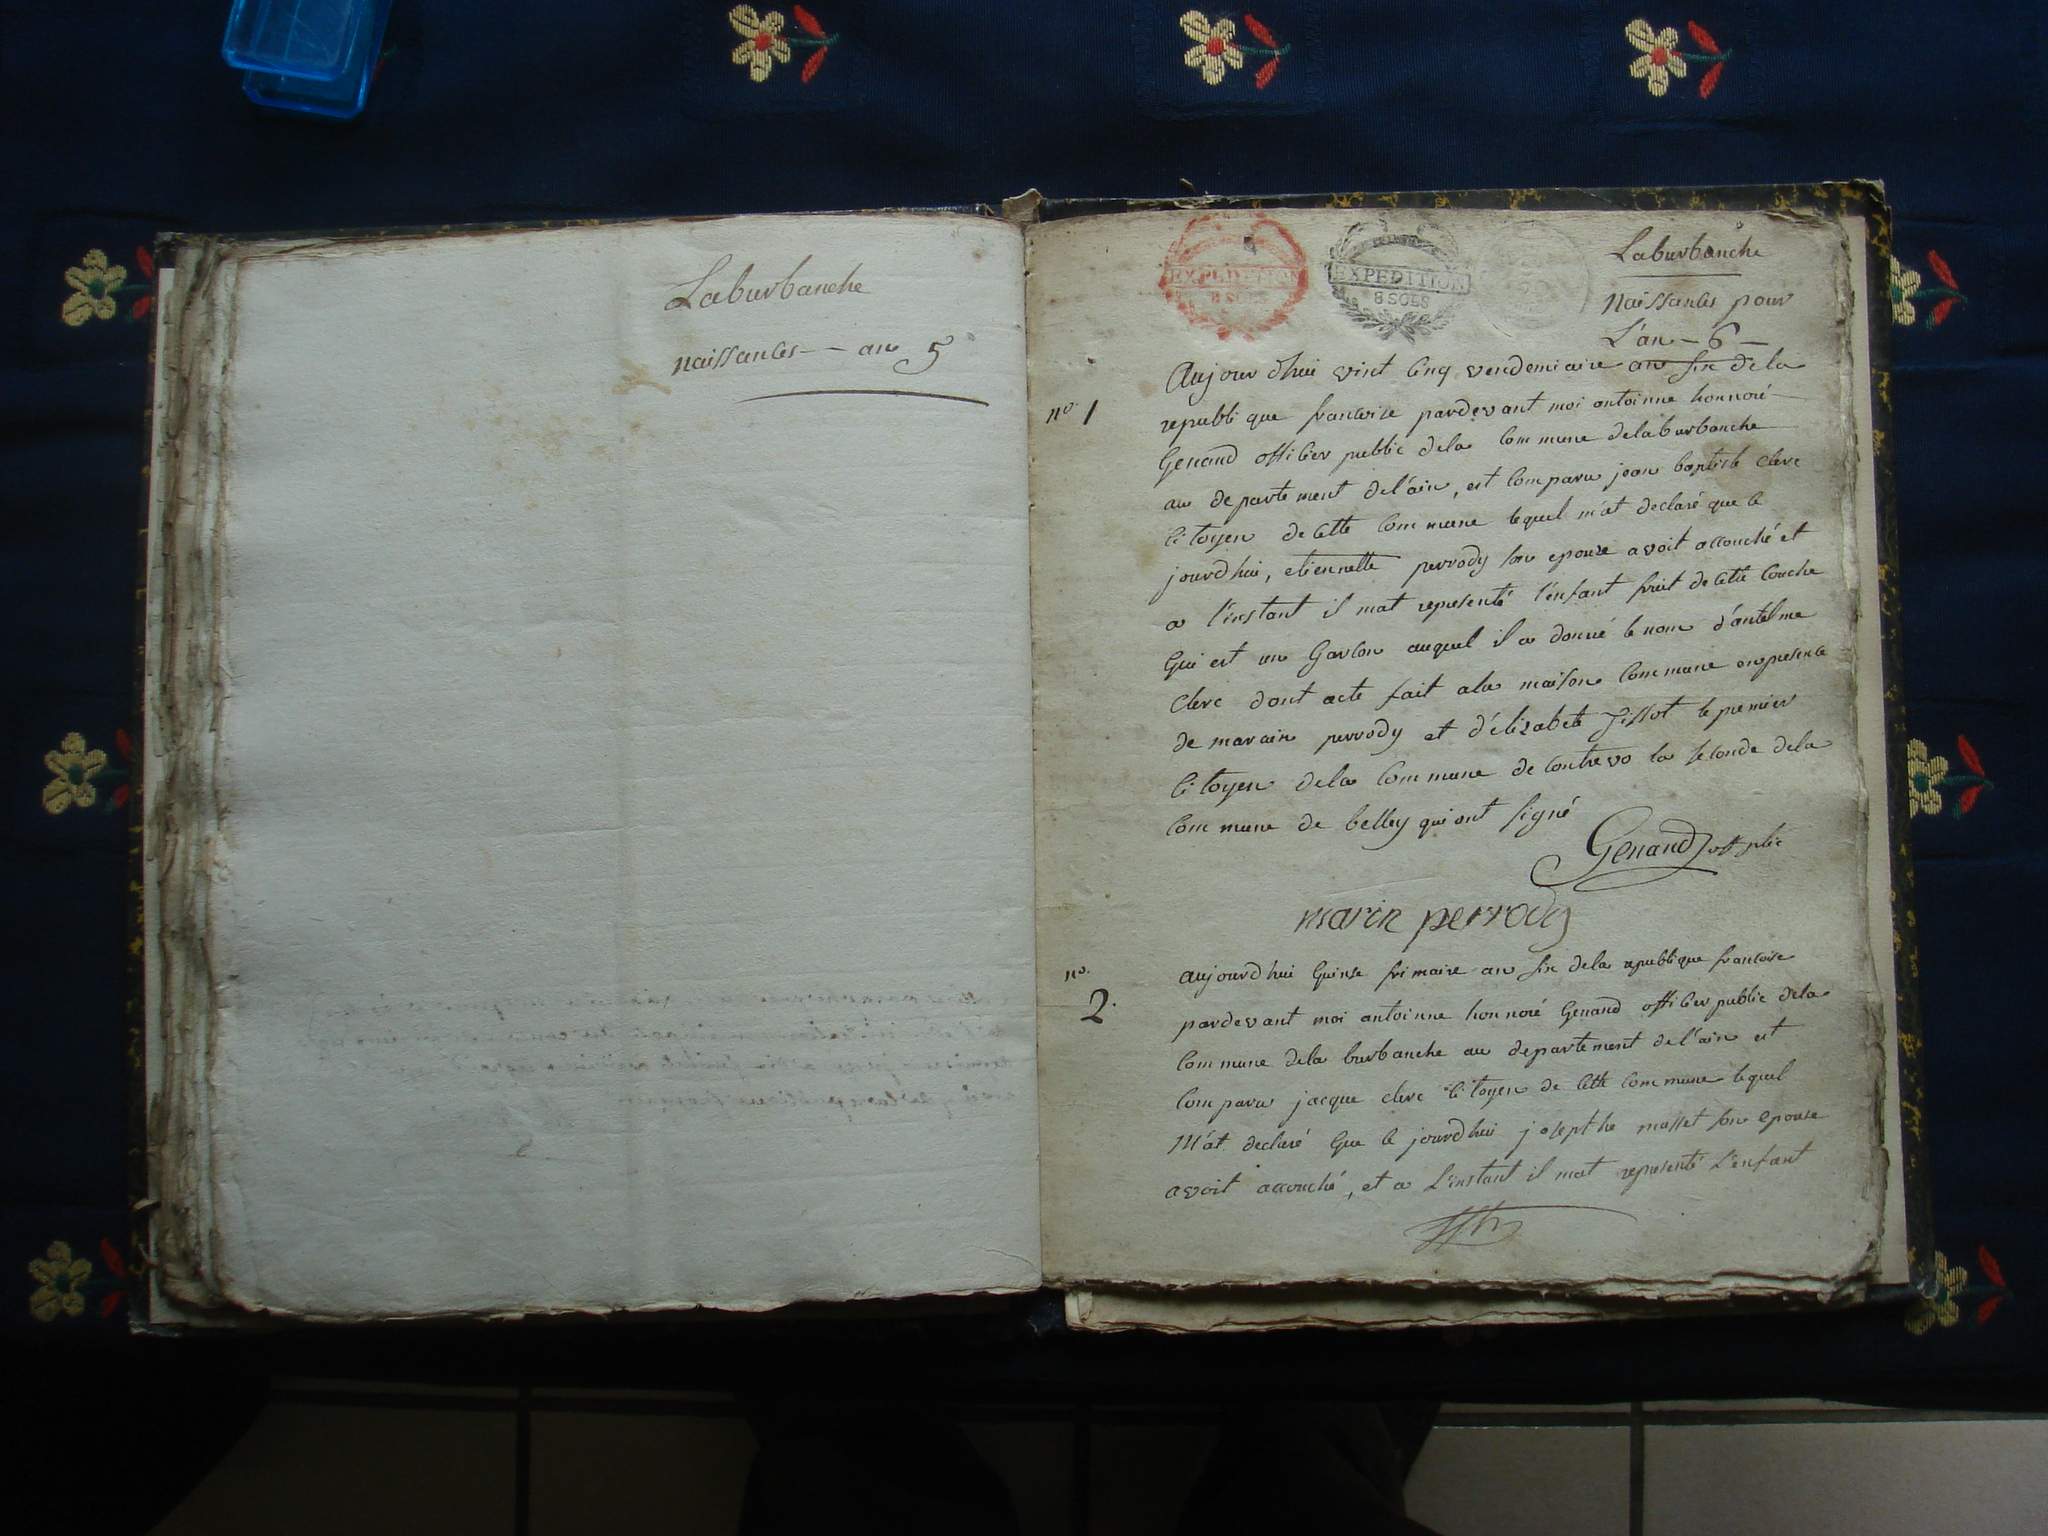 Laburbanche
naissances — an 5
EXPEDITION
8 SOLS
EXPEDITION
8 SOLS
Laburbanche
naissances pour
L'an - 6 -
no. 1
Aujourdhui vint cinq vendemiaire an six dela
republique francoise pardevant moi antoinne honnoré
Genand officier public dela commune delaburbanche
au departement del'ain, est comparu jean baptiste clerc
citoyen de cette commune lequel m'at declaré que ce
jourdhui, etiennette perrody son epouse avoit accouché et
a l'instant il mat representé l'enfant fruit de cette couche
qui est un garcon auquel il a donné le nom d'antelme
clerc dont acte fait ala maison commune en presence
de marain perrody et d'élizabete le premier
citoyen dela commune de contrevo la seconde dela
commune de belley qui ont signé
Genand off plic
marin perrody
no. 2.
aujourdhui quinse frimaire an six dela republique francoise
pardevant moi antoinne honnoré Genand officier public dela
commune dela burbanche au departement del'ain est
comparu jacque clerc citoyen de cette commune lequel
M'at declaré que ce jourdhui josepthe masset son epouse
avoit accouché, et a L'instant il mat representé L'enfant